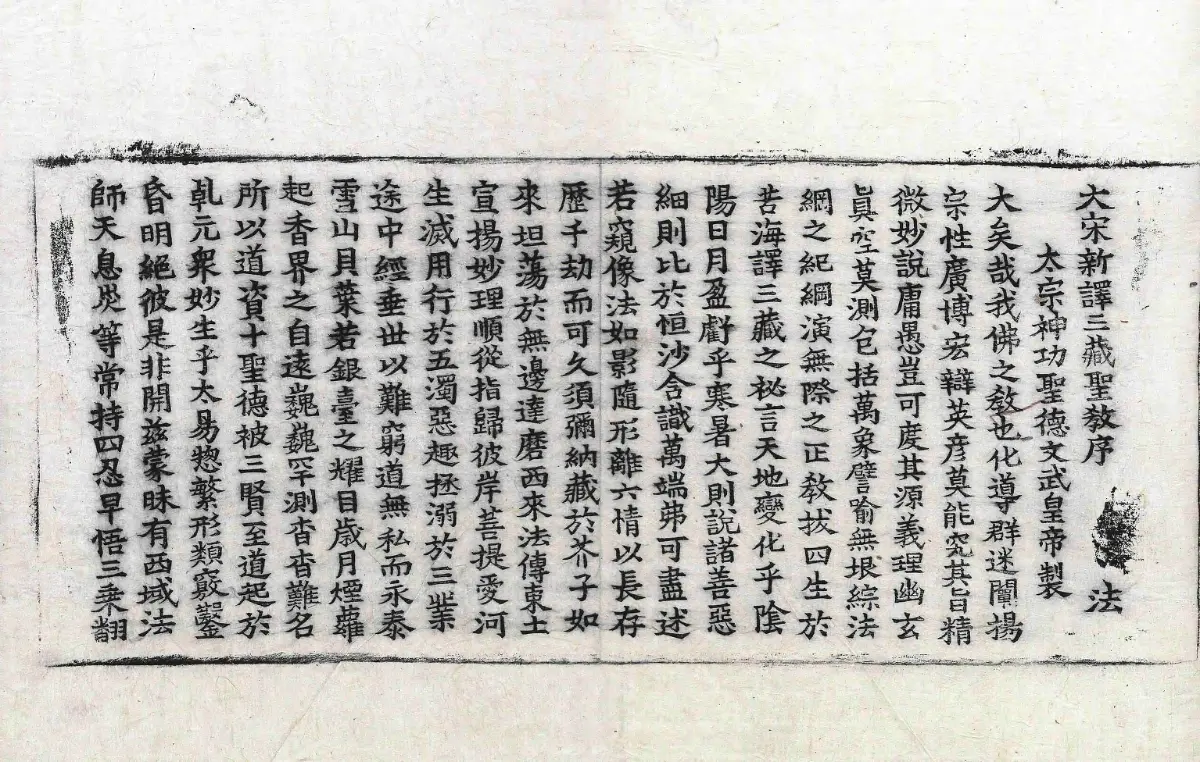 大宋新譯三藏聖敎序 法
太宗神功聖德文武皇帝製
大矣哉我佛之敎也化導群迷闡揚
宗性廣博宏辯英彦莫能究其旨精
微妙說庸愚豈可度其源義理幽玄
眞空莫測包括萬象譬喻無垠綜法
綱之紀綱演無際之正敎拔四生於
苦海譯三藏之祕言天地變化乎陰
陽日月盈虧乎寒暑大則說諸善惡
細則比於恒沙含識萬端弗可盡述
若窺像法如影隨形離六情以長存
歷千劫而可久須彌納藏於芥子如
來坦蕩於無邊達磨西來法傳東土
宣揚妙理順從指歸彼岸菩提愛河
生滅用行於五濁惡趣拯溺於三業
途中經垂世以難窮道無私而永泰
雪山貝葉若銀臺之耀目歲月煙蘿
起香界之自遠巍巍罕測杳杳難名
所以道資十聖德被三賢至道起於
乹元衆妙生乎太易惣繁形類竅鑿
昏明絕彼是非開茲蒙昧有西域法
師天息災等常持四忍早悟三乘翻